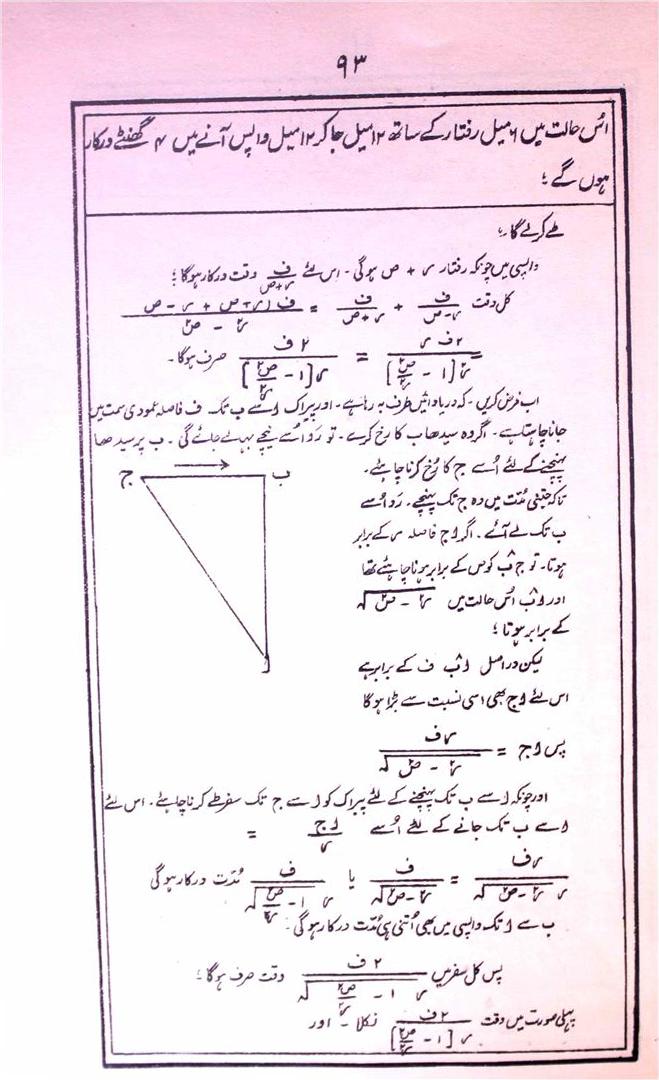 ۹۳
اُس حالت میں ۶ میل رفتار کے ساتھ ۱۲ میل جا کر ۱۲ میل واپس آنے میں ۴ گھنٹے درکار
ہوں گے ؛
طے کرلے گا ۔
واپسی میں چونکہ رفتار ر + ص ہوگی ۔ اس لئے ف / ر+ص وقت درکار ہوگا ؛
کل وقت ف / ر-ص + ف / ر+ص = ف (ر + ص + ر - ص / ر۲ - ص۲
= ۲ ف ر / ر۲ [۱ - ص۲/ر۲] = ۲ ف / ر [۱ - ص۲/ر۲] صرف ہوگا ۔
اب فرض کریں ۔ کہ دریا دائیں طرف بہ رہا ہے ۔ اور پیراک ا سے ب تک ف فاصلہ عمودی سمت میں
جانا چاہتا ہے ۔ اگر وہ سیدھا ب کا رخ کرے ۔ تو رَو اُسے نیچے بہا لے جائے گی ۔ ب پر سیدھا
پہنچنے کے لئے اُسے ج کا رُخ کرنا چاہئے ۔
ج ب
تاکہ جتنی مُدّت میں وہ ج تک پہنچے ۔ رَو اُسے
ب تک لے آئے ۔ اگر ا ج فاصلہ ر کے برابر
ہوتا ۔ تو ج ب کو ص کے برابر ہونا چاہئے تھا
اور ا ب اُس حالت میں √ر۲ - ص۲
کے برابر ہوتا ؛
ا
لیکن دراصل ا ب ف کے برابر ہے
اس لئے ا ج بھی اسی نسبت سے بڑا ہوگا
پس ا ج = ر ف / √ر۲ - ص۲
اور چونکہ ا سے ب تک پہنچنے کے لئے پیراک کو ا سے ج تک سفر طے کرنا چاہئے ۔ اس لئے
ا سے ب تک جانے کے لئے اُسے ا ج / ر =
ر ف / ر √ر۲ - ص۲ = ف / √ر۲ - ص۲ یا ف / ر √۱ - ص۲/ر۲ مُدّت درکار ہوگی
ب سے ا تک واپسی میں بھی اُتنی ہی مُدّت درکار ہوگی ؛
پس کل سفر میں ۲ ف / ر √۱ - ص۲/ر۲ وقت صرف ہوگا ؛
پہلی صورت میں وقت ۲ ف / ر [۱ - ص۲/ر۲] نکلا ۔ اور